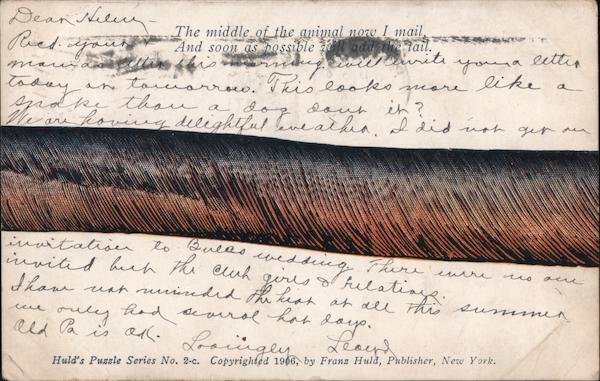 Dear Helen,
The middle of the animal now I mail,
And soon as possible will add the tail.
Recd. your
mama's letter this morning will write you a letter
today or tomorrow. This looks more like a
snake than a dog dont it?
We are having delightful weather. I did not get an
invitation to wedding. There were no one
invited but the club girls & relatives.
I have not minded the heat at all this summer
we only had several hot days.
Old Pa is OK. Lovingly
Huld's Puzzle Series No. 2-c. Copyrighted 1906, by Franz Huld, Publisher, New York.